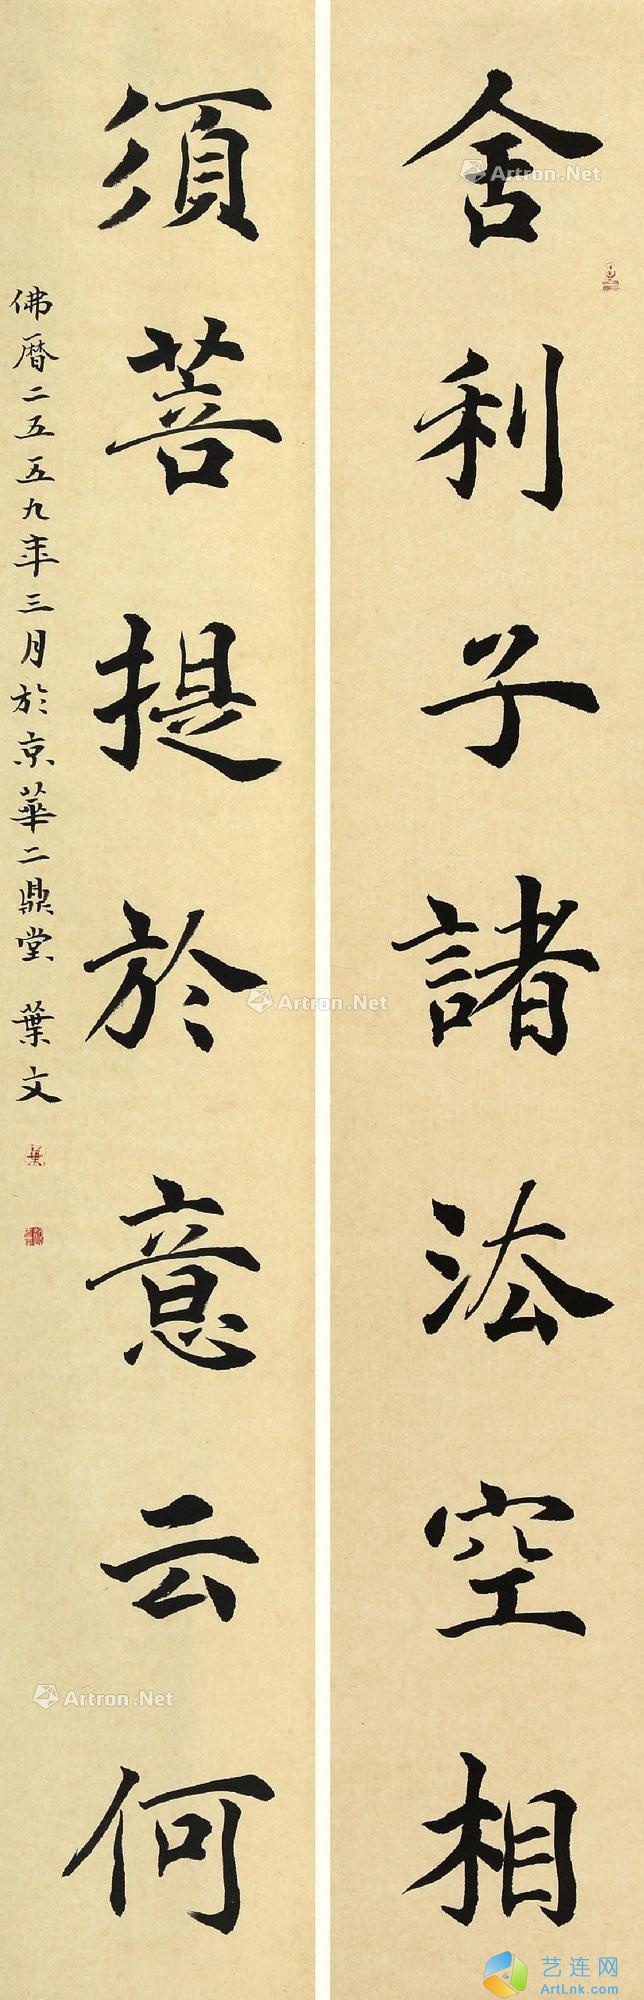 舍利子諸法空相
須菩提於意云何
佛曆二五五九年三月於京華二鼎堂 葉文
Artron.Net
Artron.Net
Artron.Net
艺连网
ArtLnk.com